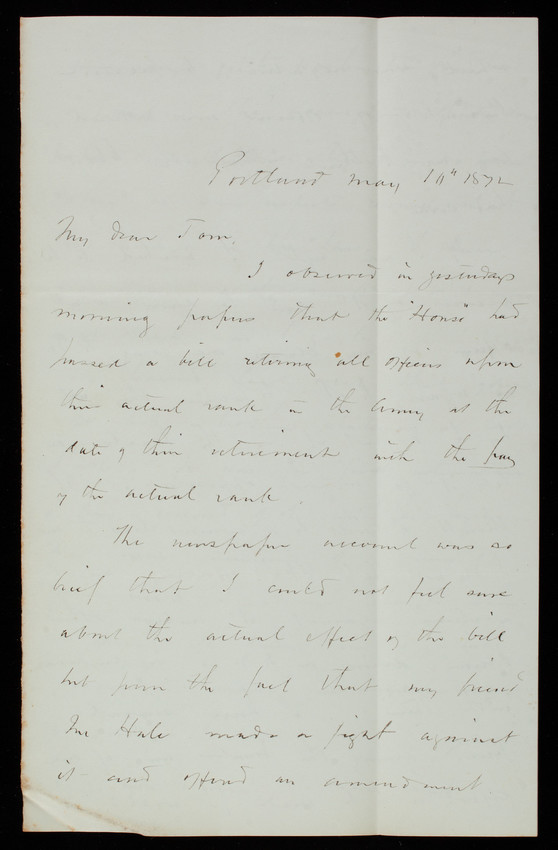 Portland May 10th 1872
My dear Tom,
I observed in yesterdays
morning papers that the "House" had
passed a bill retiring all officers upon
their actual rank in the Army at the
date of their retirement with the pay
of the actual rank.
The newspaper account was so
brief that I could not feel sure
about the actual effect of the bill
but from the fact that my friend
Mr Hale made a fight against
it and offered an amendment